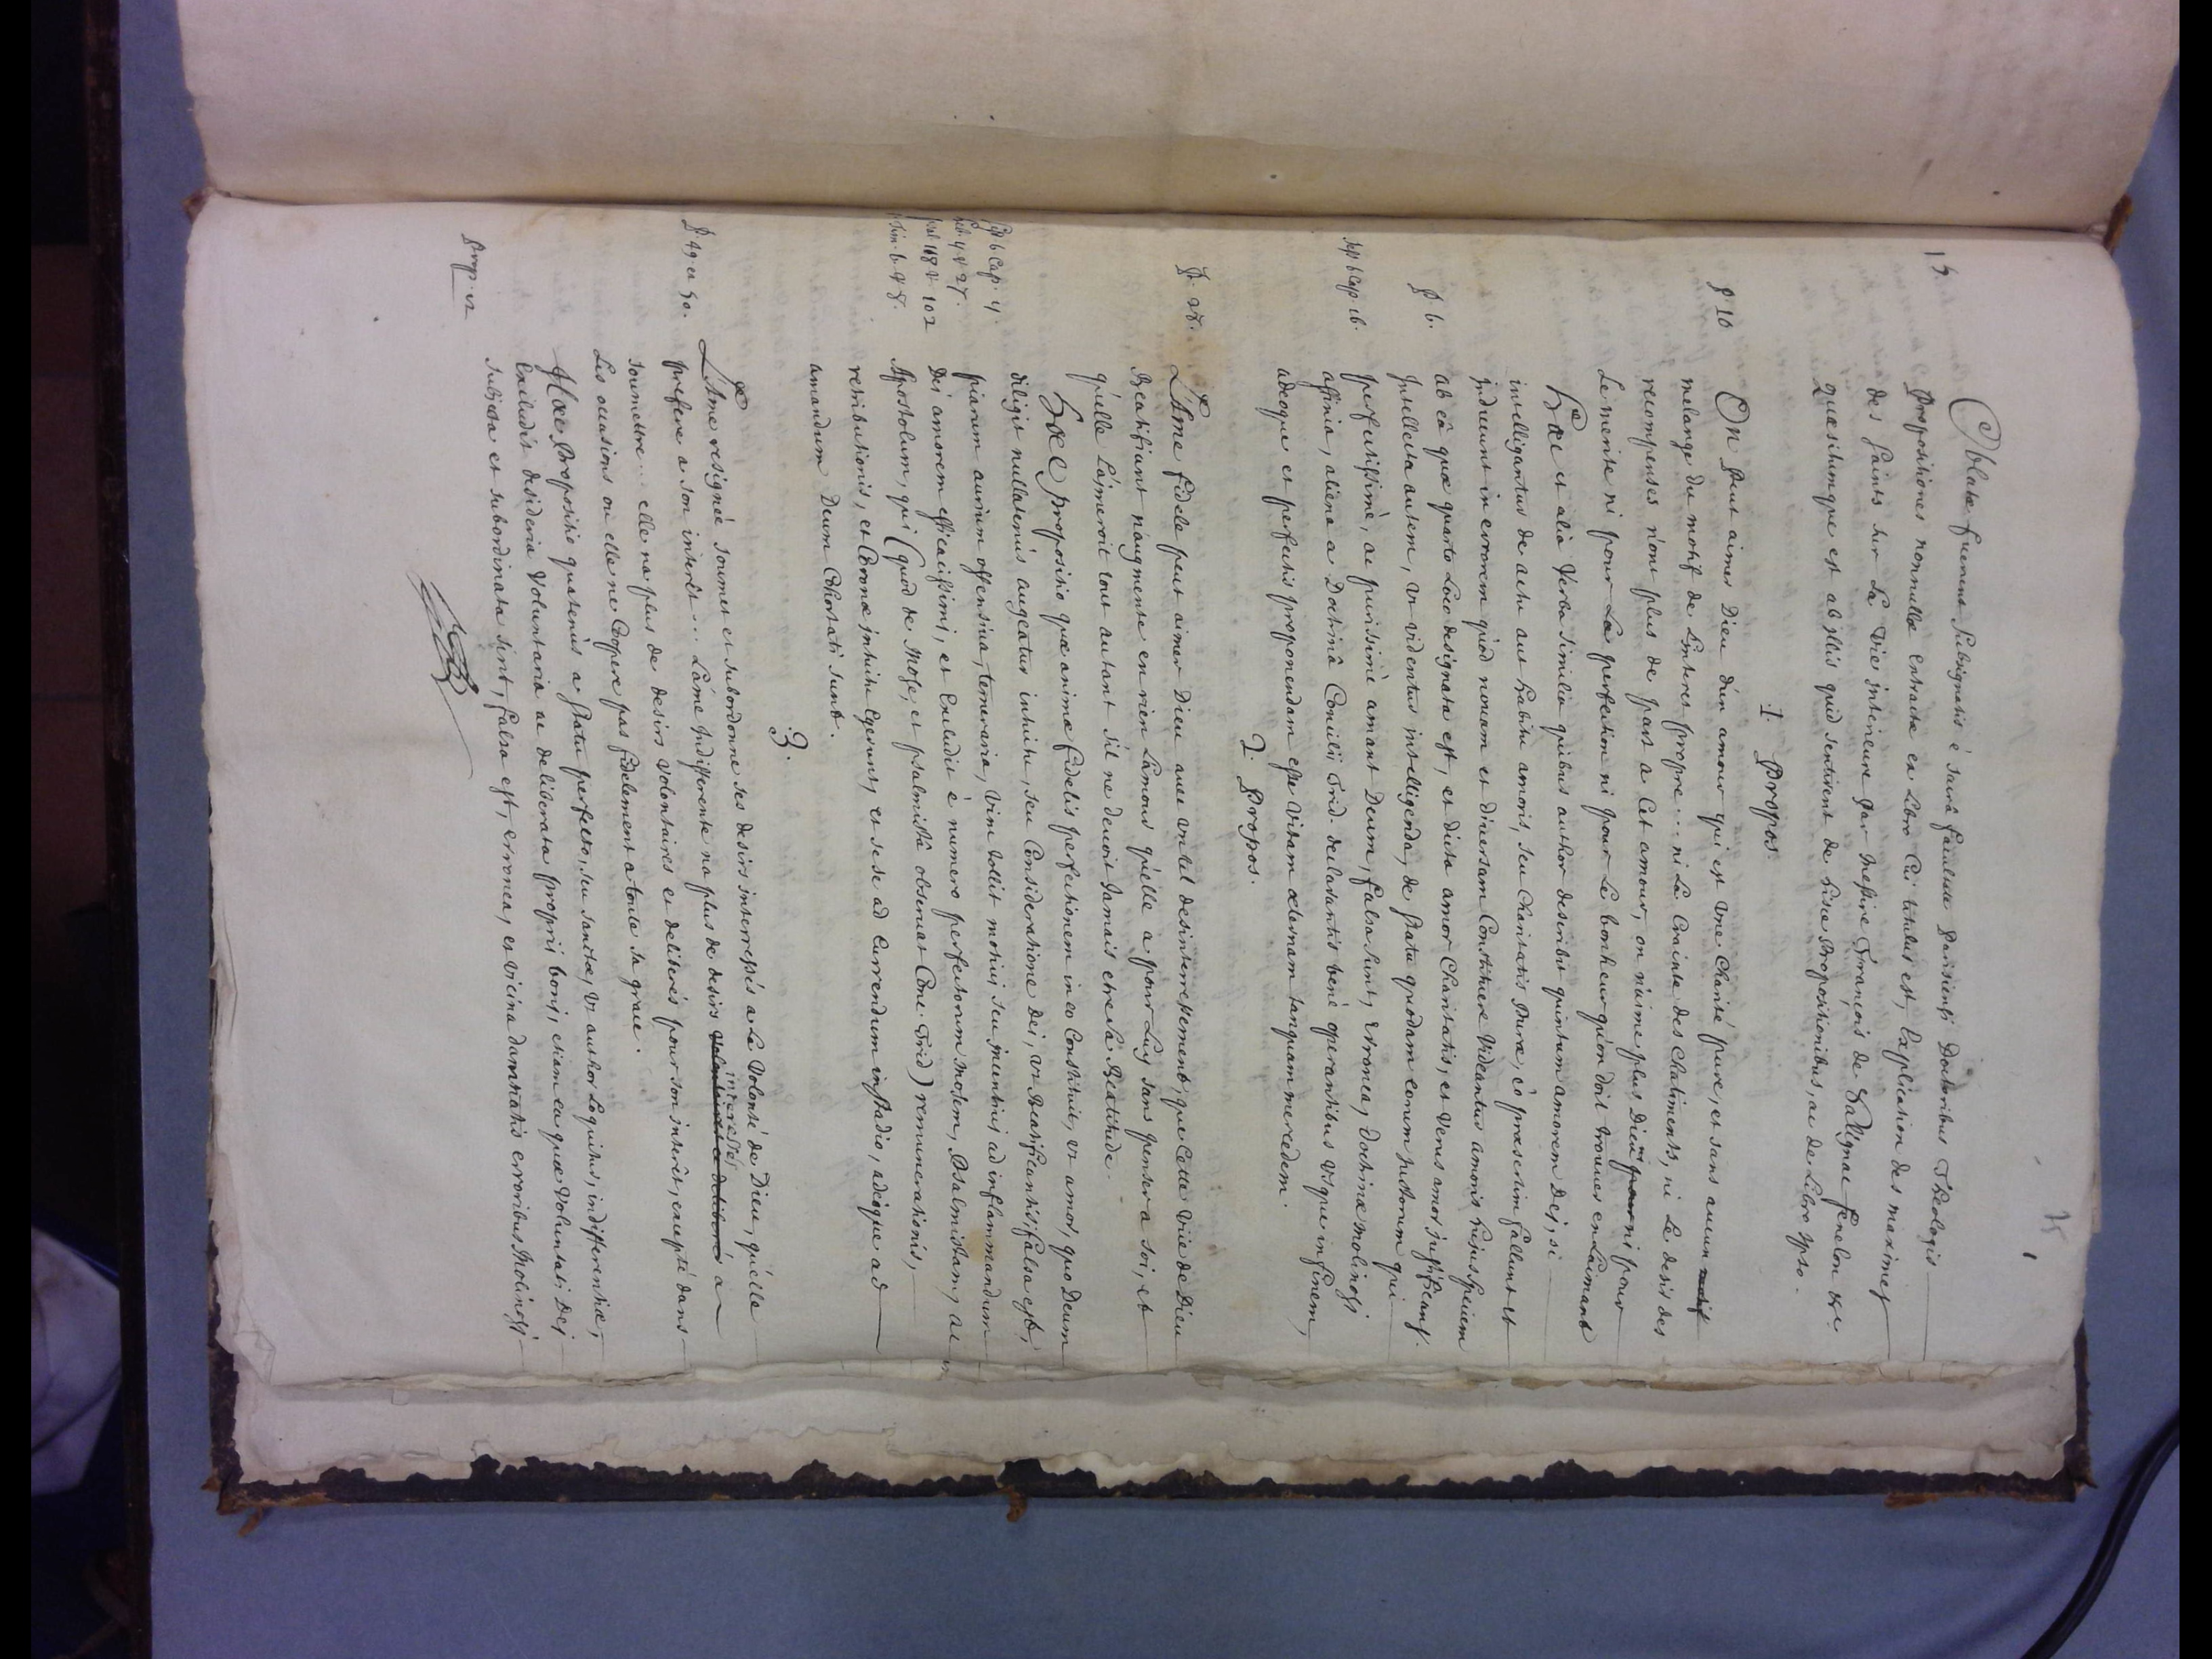 15.
1
Oblatæ fuerunt subsignatis è sacrâ facultate Parisiensi Doctoribus Theologis
Propositiones nonnullæ extractæ ex Libro Cui titulus est, Explication des maximes
des Saints sur La Vie interieure par Messire François de Salignac fenelon &c.
quæsitumque est ab illis quid sentirent de hisce Propositionibus, ac de Libro ipso.
1. Propos.
P 10
On peut aimer Dieu d'un amour qui est une Charité pure, et sans aucun motif
melange du motif de L'interes propre ... ni La Crainte des Chatiments, ni Le desir des
recompenses n'ont plus de part a Cet amour, on n'aime plus Dieu ni pour ni pour
Le merite ni pour La perfection ni pour Le bonheur qu'on doit trouver en L'aimant
Hæc et alia Verba similia quibus author describit quintum amorem Dei, si
intelligantur de actu aut habitu amoris, seu Charitatis Puræ, eo præsertim fallunt et
inducunt in errorem quod novam et diversam Constituere Videantur amoris hujus speciem
P. 6.
ab eâ quæ quarto Loco designata est, et dicta amor Charitatis, et Verus amor justificans.
Intellecta autem, ut videntur intelligenda, de statu quodam eorum justorum qui
perfectissimè, ac purissimè amant Deum, falsa sunt, erronea, doctrinæ molinosi
sess 6 Cap. 16.
affinia, aliena a Doctrinâ Concilii Trid. declarantis bene operantibus usque in finem,
adeoque et perfectis proponendam esse Vitam æternam tanquam mercedem.
2. Propos.
P. 28.
L'Ame fidele peut aimer Dieu avec un tel desinterressement, que Cette Vuë de Dieu
Beatifiant n'augmente en rien L'amour qu'elle a pour Luy sans penser a soi, et
qu'elle L'aimeroit tout autant s'il ne devoit Jamais etre sa Beatitude.
Hæc Propositio quæ animæ fidelis perfectionem in eo Constituit, ut amor, quo Deum
diligit nullatenus augeatur intuitu, seu Consideratione Dei, ut Beatificantis; falsa est,
Sess 6 Cap. 11.
piarum aurium offensiva, temeraria, Vim tollit motivi seu incentivi ad inflammandum
Dei amorem efficacissimi, et Excludit è numero perfectorum Mosem, Psalmistam, ac
Psal 118 v 102
Apostolum, qui (quod de Mose, et psalmistâ observat Conc. Trid) remunerationis,
retributionis, et Coronæ intuitu egerunt, et se se ad Currendum in stadio, adeoque ad
amandum Deum Cohortati sunt.
3.
P. 49 et 50.
L'Ame resignée soumet et subordonne ses desirs interressés a La Volonté de Dieu, qu'elle
prefere a son interêt ... L'ame Indifferente na plus de desirs volontaires et deliberés a
interressés
soumettre ... elle na plus de desirs volontaires et deliberés pour son interêt, excepté dans
Les occasions ou elle ne Coopere pas fidelement a toute sa grace.
Hæc Propositio quatenus a statu perfecto, seu sanctæ, ut author Loquitur, indifferentiæ,
Excludit desideria Voluntaria ac deliberata proprii boni, etiam ea quæ Voluntati Dei
Prop. 12
subjecta et subordinata sint, falsa est, erronea, et vicina damnatis erroribus Molinosi